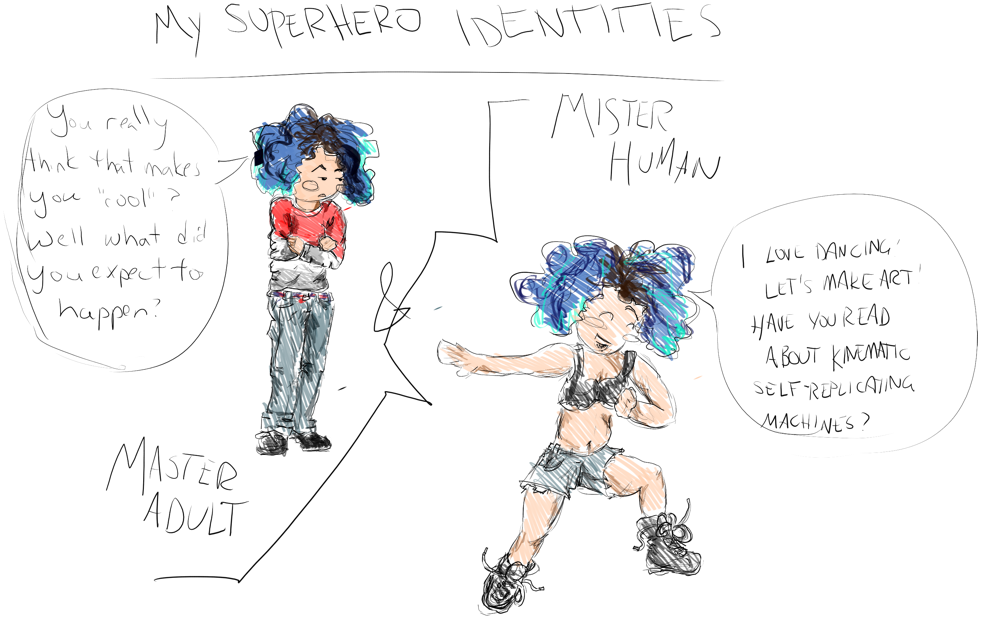 MY SUPERHERO IDENTITIES
You really
think that makes
you "cool"?
Well what did
you expect to
happen?
MASTER
ADULT
&
MISTER
HUMAN
I LOVE DANCING!
LET'S MAKE ART!
HAVE YOU READ
ABOUT KINEMATIC
SELF-REPLICATING
MACHINES?